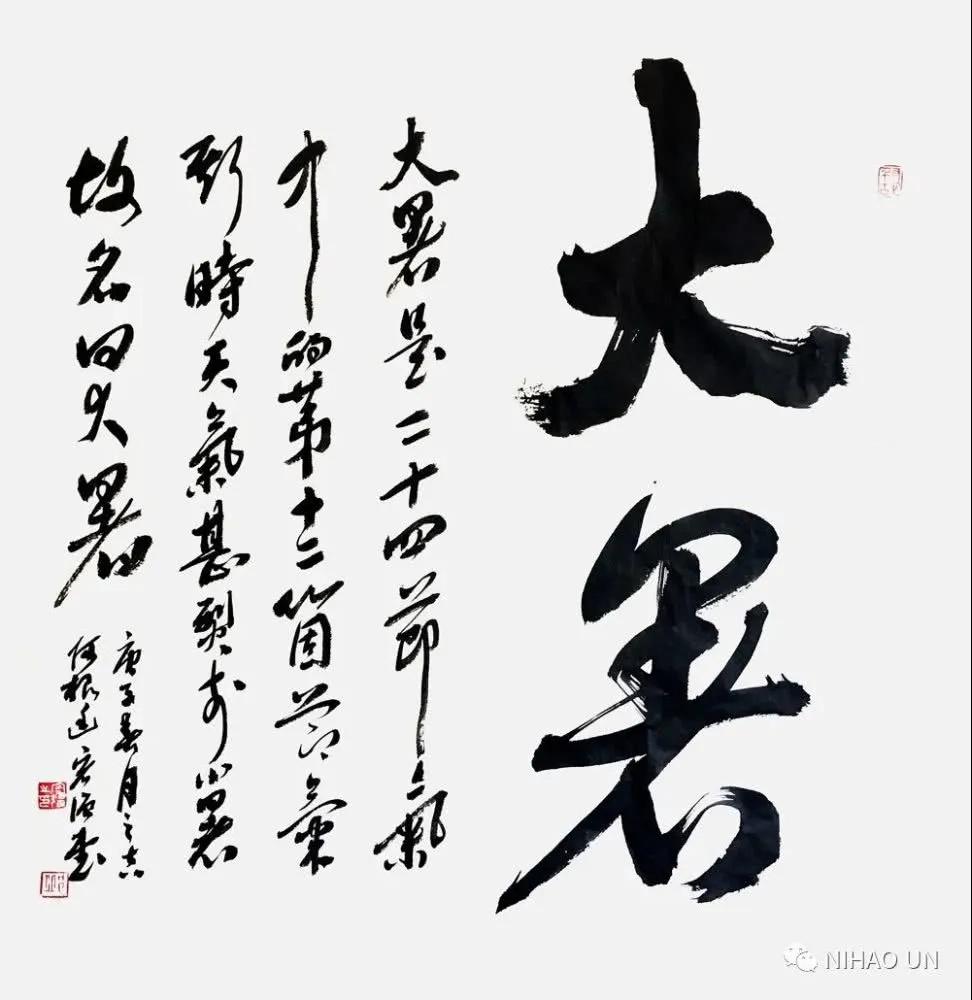 大暑
大暑是二十四節氣
中的第十二箇節氣
斯時天氣甚烈於小暑
故名曰大暑
庚子春月之吉
書
NIHAO UN